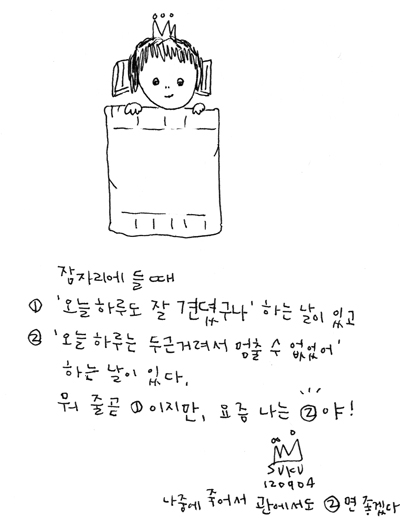 잠자리에 들 때
① '오늘 하루도 잘 견뎠구나' 하는 날이 있고
② '오늘 하루는 두근거려서 멈출 수 없었어'
하는 날이 있다.
뭐 줄곧 ①이지만, 요즘 나는 ②야!
SUKU
120904
나중에 죽어서 관에서도 ②면 좋겠다